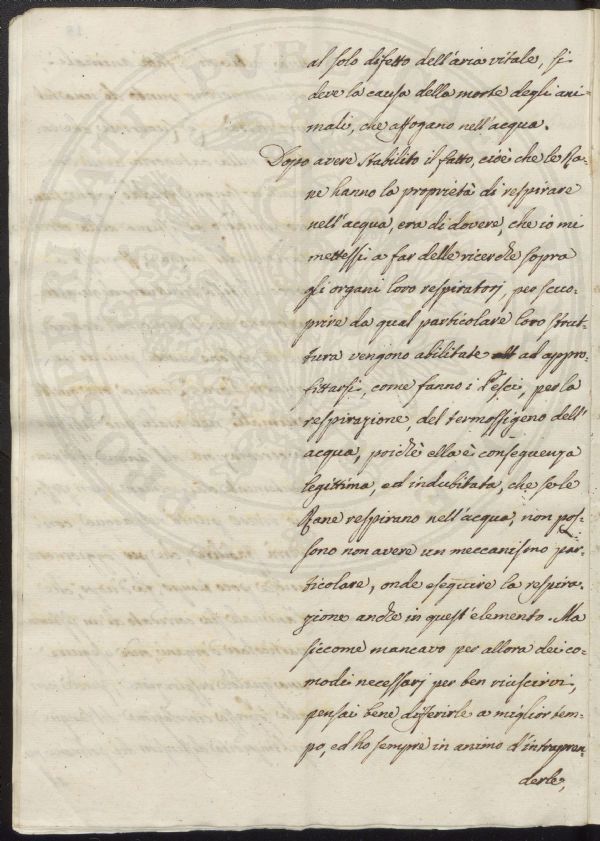 al solo difetto dell'aria vitale, si
deve la causa della morte degli ani-
mali, che affogano nell'acqua.
Dopo avere stabilito il fatto, cioè che le Ra-
ne hanno la proprietà di respirare
nell'acqua, era di dovere, che io mi
mettessi a far delle ricerche sopra
gli organi loro respiratorj, per scuo-
prire da qual particolare loro strut-
tura vengono abilitate ad appro-
fittarsi, come fanno i Pesci, per la
respirazione, del termossigeno dell'
acqua, poichè ella è conseguenza
legittima, ed indubitata, che se le
Rane respirano nell'acqua, non pos-
sono non avere un meccanismo par-
ticolare, onde eseguire la respira-
zione anche in quest'elemento. Ma
siccome mancavo per allora dei co-
modi necessarj per ben riuscirvi,
pensai bene diferirle a miglior tem-
po, ed ho sempre in animo d'intrapren-
derle,